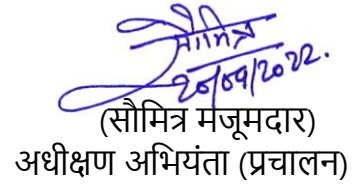 सौमित्र
20/09/2022.
(सौमित्र मजूमदार)
अधीक्षण अभियंता (प्रचालन)